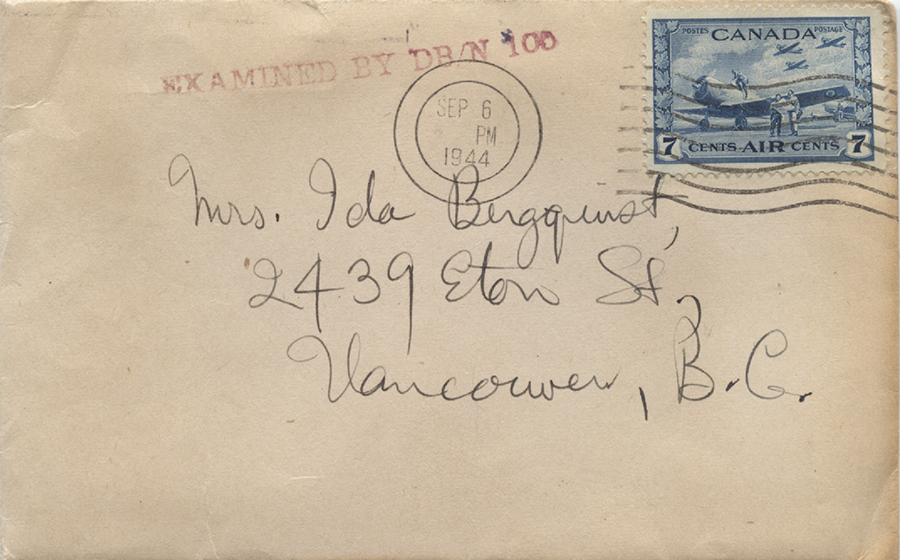 EXAMINED BY DB/N 100
SEP 6
PM
1944
POSTES CANADA POSTAGE
7 CENTS AIR CENTS 7
Mrs. Ida Bergquist,
2439 Eton St,
Vancouver, B.C.